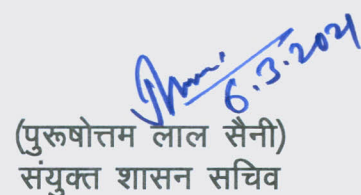 6.3.2021
(पुरूषोत्तम लाल सैनी)
संयुक्त शासन सचिव